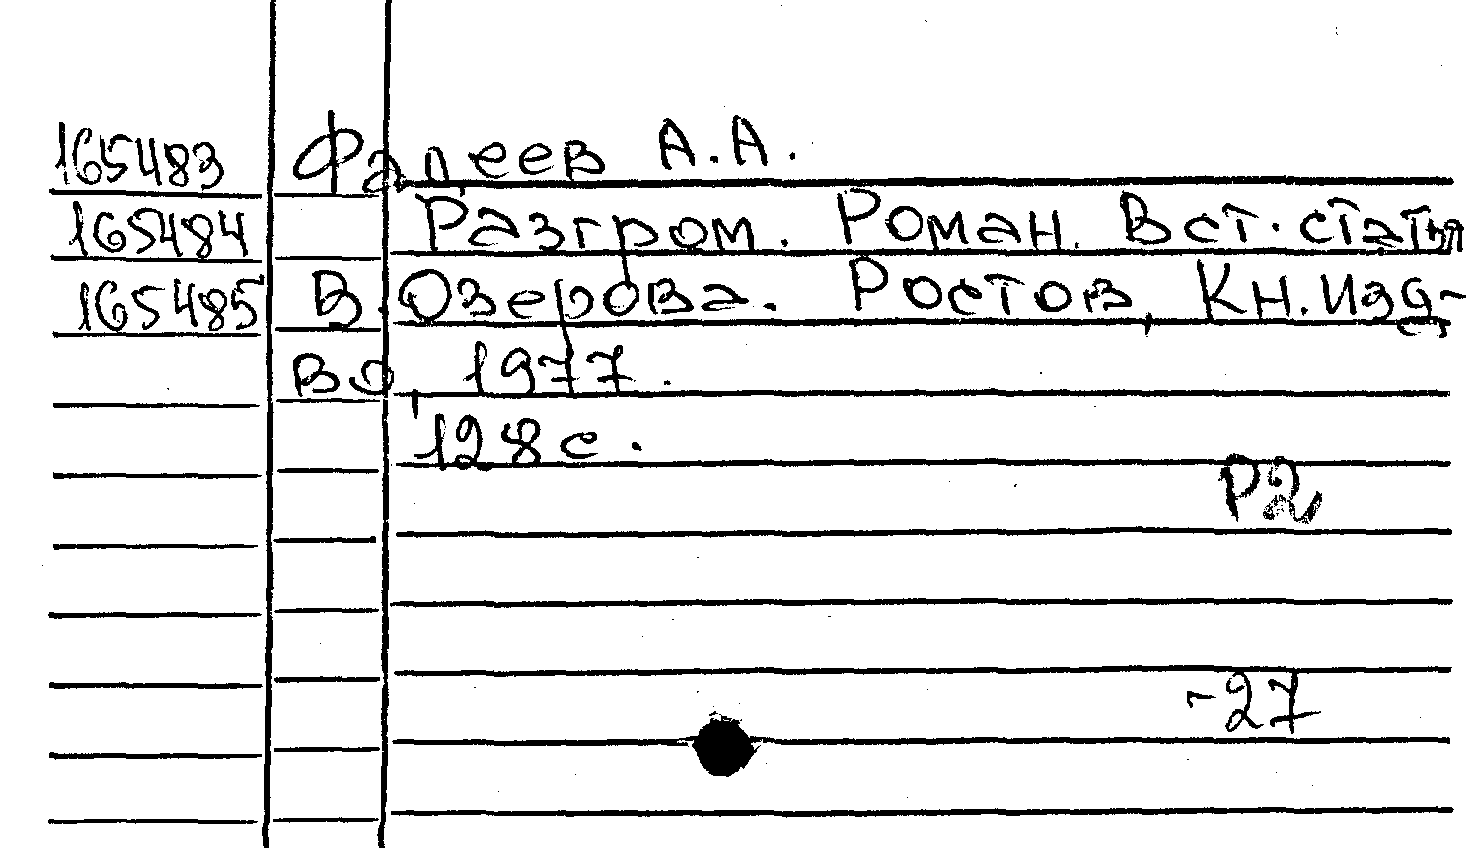 165483 Фадеев А.А.
165484 Разгром. Роман. Вст. статья
165485 В. Озерова. Ростов, Кн. изд-
во, 1977.
128 с.
Р2
-27